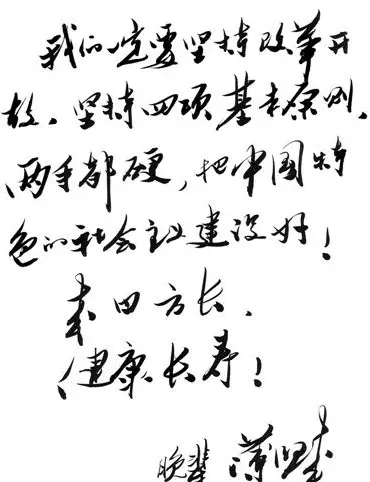 我们一定要坚持改革开
放、坚持四项基本原则、
两手都硬,把中国特
色的社会主义建设好!
来日方长、
健康长寿!
晚辈 薄熙来